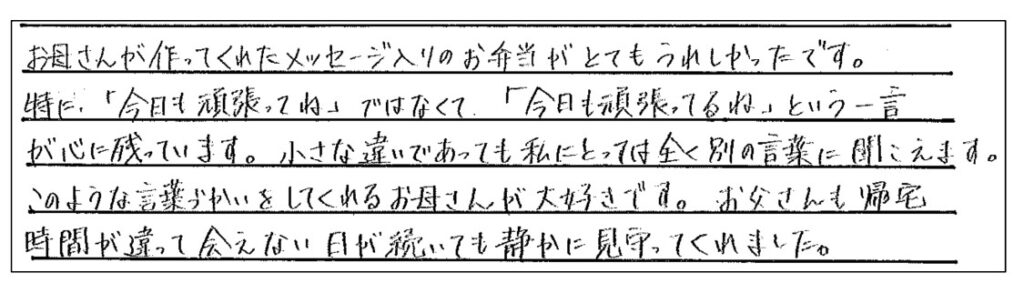 お母さんが作ってくれたメッセージ入りのお弁当がとてもうれしかったです。
特に、「今日も頑張ってね」ではなくて、「今日も頑張ってるね」という一言
が心に残っています。小さな違いであっても私にとっては全く別の言葉に聞こえます。
このような言葉づかいをしてくれるお母さんが大好きです。お父さんも帰宅
時間が違って会えない日が続いても静かに見守ってくれました。